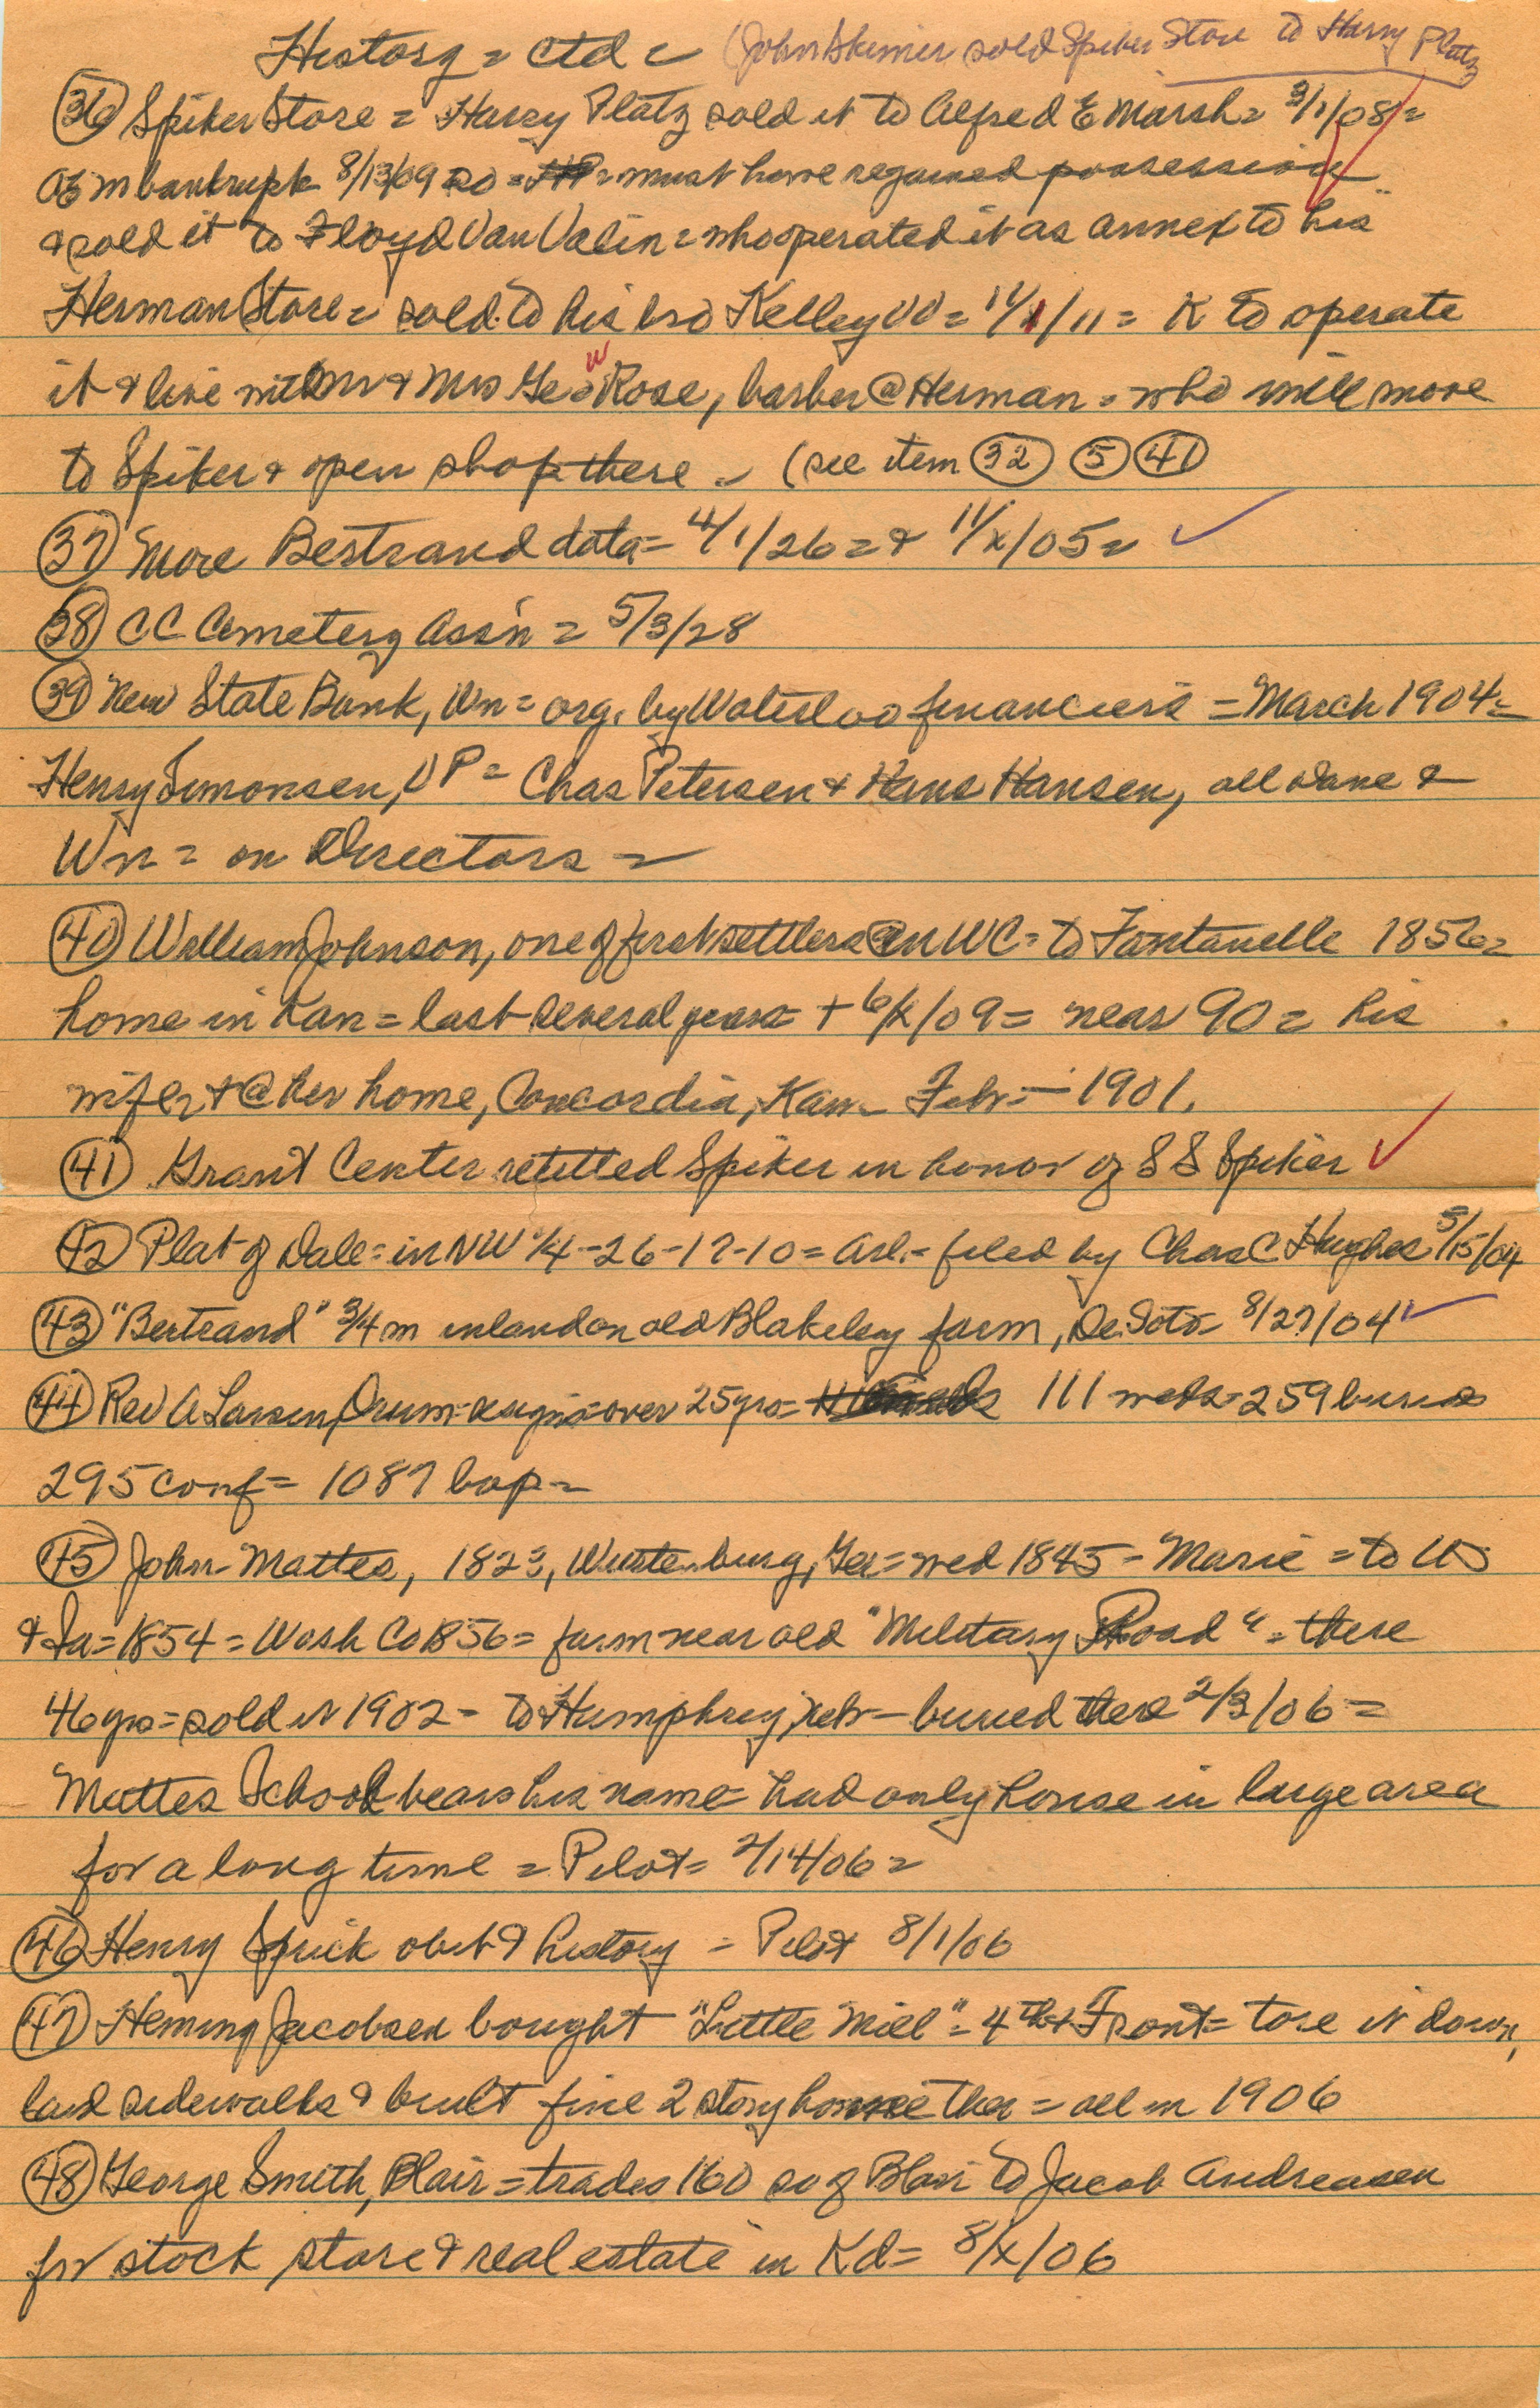 History = ctd = (John Skinner sold Spiker Store to Harry Platz
(36) Spiker Store = Harry Platz sold it to Alfred E Marsh = 3/1/08 =
AEM bankrupt 8/13/09 so = HP = must have regained possession
& sold it to Floyd Van Valin = who operated it as annex to his
Herman Store = sold to his bro Kelley VV = 11/1/11 = K to operate
it & live with Mr & Mrs Geo W Rose, barber @ Herman = who will move
to Spiker & open shop there = (see item (32) (5) (41)
(37) More Bertrand data = 4/1/26 = & 11/x/05 =
(38) CC Cemetery Ass'n = 5/3/28
(39) New State Bank, Wn = org. by Waterloo financiers = March 1904 =
Henry Simonsen, VP = Chas Petersen & Hans Hansen, all Dane &
Wn = on Directors =
(40) William Johnson, one of first settlers @ in WC = to Fontanelle 1856 =
home in Kan = last several years = + 6/x/09 = near 90 = his
wife + @ her home, Concordia, Kan = Feb = 1901.
(41) Grant Center retitled Spiker in honor of S S Spiker
(42) Plat of Dale = in NW 1/4 - 26-17-10 = Arl. - filed by Chas C Hughes 5/15/04
(43) "Bertrand" 3/4 m inland on old Blakeley farm, De Soto = 8/27/04
(44) Rev A Larsen, Orum = resigns = over 25 yrs = 111 weds = 259 burials
295 conf = 1087 bap =
(45) John Mattes, 1823, Wurtenburg, Ger = wed 1845 - Marie = to US
& Ia = 1854 = Wash Co 1856 = farm near old "Military Road" = there
46 yrs = sold it 1902 - to Humphrey, Neb - buried there 2/3/06 =
Mattes School bears his name = had only house in large area
for a long time = Pilot = 2/14/06 =
(46) Henry Sprick obit & history = Pilot 8/1/06
(47) Heming Jacobsen bought "Little Mill" = 4th & Front = tore it down,
laid sidewalks & built fine 2 story home ther = all in 1906
(48) George Smith, Blair = trades 160 so of Blair to Jacob Andreasen
for stock store & real estate in Kd = 8/x/06